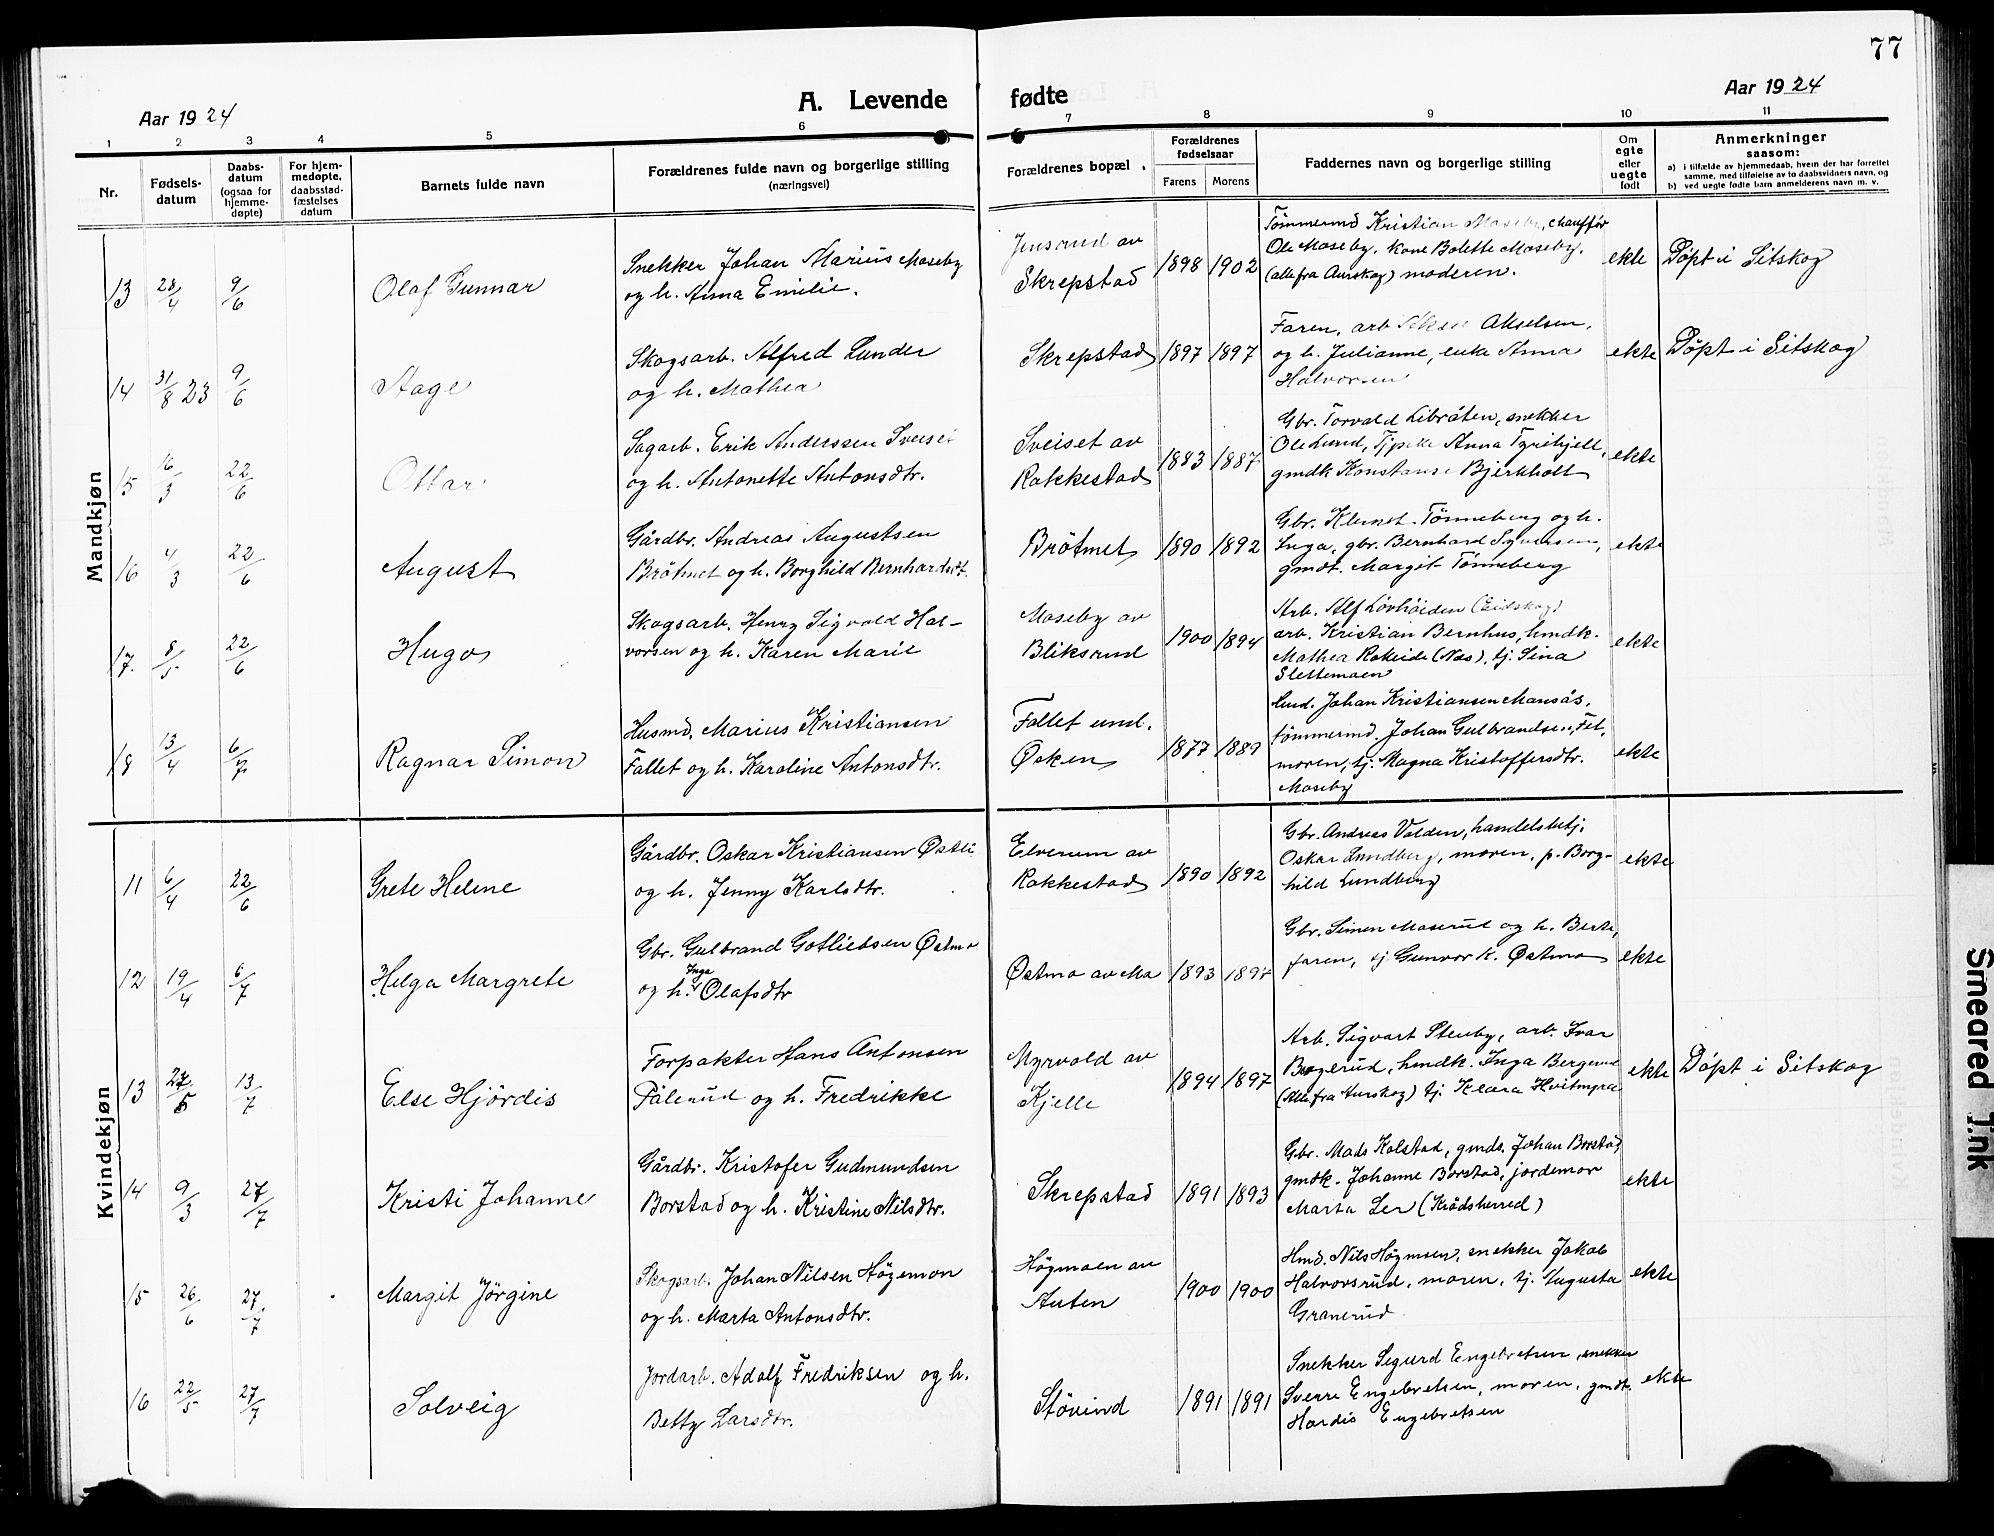 77
Aar 1924
A. Levende fødte
Aar 1924
1 2 3 4 5 6 7 8 9 10 11
Nr.
Fødsels-
datum
Daabs-
datum
(ogsaa for
hjemme-
døpte)
For hjem-
medøpte,
daabsstad-
fæstelses
datum
Barnets fulde navn
Forældrenes fulde navn og borgerlige stilling
(næringsvei)
Forældrenes bopæl
Forældrenes
fødselsaar
Farens Morens
Faddernes navn og borgerlige stilling
Om
egte
eller
uegte
født
Anmerkninger
saasom:
a) i tilfælde av hjemmedaab, hvem der har forrettet
samme, med tilføielse av to daabsvidners navn, og
b) ved uegte fødte barn anmelderens navn m. v.
Mandkjøn
13 28/4 9/6 Olaf Gunnar
Snekker Johan Marius Moseby
og h. Anna Emilie.
Jensrud av
Skrepstad
1898 1902
Tømmermd Kristian Moseby, chauffør
Ole Moseby, kone Bolette Moseby,
(alle fra Aurskog) moderen.
ekte Døpt i Sitskog
14 31/8 23 9/6 Aage
Skogsarb. Alfred Lunder
og h. Mathea
Skrepstad 1897 1897
Faren, arb. Akselsen,
og h. Julianne, enke Anna
Halvorsen
ekte Døpt i Sitskog
15 16/3 22/6 Ottar
Sagarb. Erik Anderssen Sveiset
og h. Antonette Antonsdtr.
Sveiset av
Rakkestad
1883 1887
Gbr. Torvald Libråten, snekker
Ole Lund, Anna Tyrihjell,
gmdk Konstanse Bjerkholt
ekte
16 4/3 22/6 August
Gårdbr. Andreas Augustsen
Bråtnet og h. Borghild Bernhardsdt.
Bråtnet 1890 1892
Gbr. Klemet Tønneberg og h.
Inga, gbr. Bernhard Syversen,
gmdt. Margit Tønneberg
ekte
17. 8/5 22/6 Hugo
Skogsarb. Henry Sigvald Hal-
vorsen og h. Karen Marie
Moseby av
Bliksrud
1900 1894
Arb. Alf Lövhöiden (Eidskog)
arb. Kristian Bernhus, hmdk.
Mathea Rakeide (Næs), tj. Sina
Slettemoen
ekte
18 13/4 6/7 Ragnar Simon
Husmd. Marius Kristiansen
Fallet og h. Karoline Antonsdtr.
Fallet und.
Øsken
1877 1889
Hmd. Johan Kristiansen Mansås,
tömmermd. Johan Gulbrandsen, Fet,
moren, tj. Magna Kristoffersdtr.
Moseby
ekte
Kvindekjøn
11 6/4 22/6 Grete Helene
Gårdbr. Oskar Kristiansen Østli
og h. Jenny Karlsdtr.
Elverum av
Rakkestad
1890 1892
Gbr. Andreas Volden, handelsbetj.
Oskar Lundberg, moren, p. Borg-
hild Lundberg
ekte
12 19/4 6/7 Helga Margrete
Gbr. Gulbrand Gotliebsen Østmo
og h. Inga Olafsdtr
Østmo av Mo 1893 1897
Gbr. Simen Moserud og h. Berte,
faren, tj Gunvor K. Østmo
ekte
13 27/5 13/7 Else Hjördis
Forpakter Hans Antonsen
Pålerud og h. Fredrikke
Myrvold av
Kjelle
1894 1897
Arb. Sigvart Stenby, arb. Ivar
Bøgerud, hmdk. Inga Bergerud
(Alle fra Aurskog) tj. Klara Hvitmyra
ekte Døpt i Sitskog
14 9/3 27/7 Kristi Johanne
Gårdbr. Kristofer Gudmundsen
Borstad og h. Kristine Nilsdtr.
Skrepstad 1891 1893
Gbr. Mads Kolstad, gmds. Johan Borstad,
gmdk. Johanne Borstad, jordemor
Marta Ler (Krødsherred)
ekte
15 26/6 27/7 Margit Jörgine
Skogsarb. Johan Nilsen Högemon
og h. Marta Antonsdtr.
Högmoen av
Auten
1900 1900
Hmd. Nils Högmoen, snekker Jakob
Halvorsrud, moren, tj. Augusta
Granerud
ekte
16 22/5 27/7 Solveig
Jordarb. Adolf Fredriksen og h.
Betty Larsdtr.
Stövind 1891 1891
Snekker Sigurd Engebretsen, snekker
Sverre Engebretsen, moren, gmdt.
Hardis Engebretsen
ekte
Smeared Ink